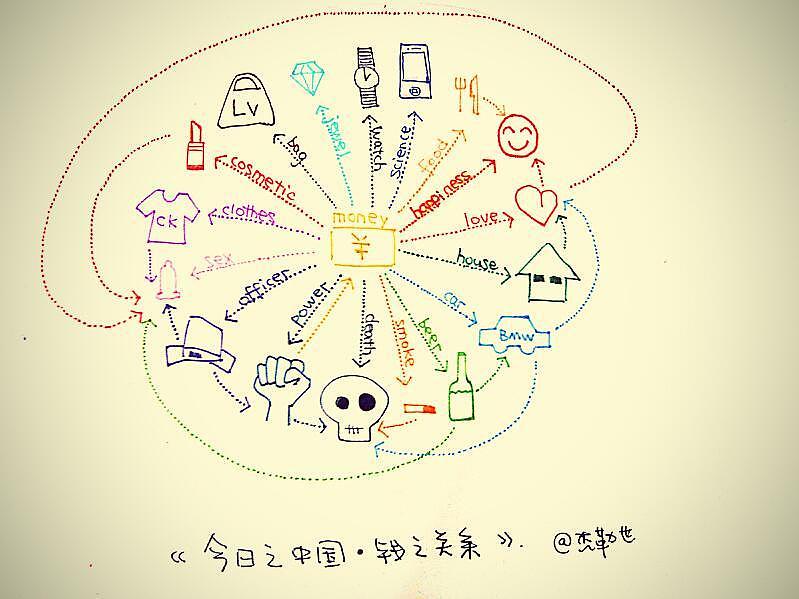 LV
jewel
watch
science
food
bag
cosmetic
happiness
CK
clothes
money
love
sex
¥
house
officer
power
death
smoke
beer
car
BMW
《今日之中国·钱之关系》. @杰勒世